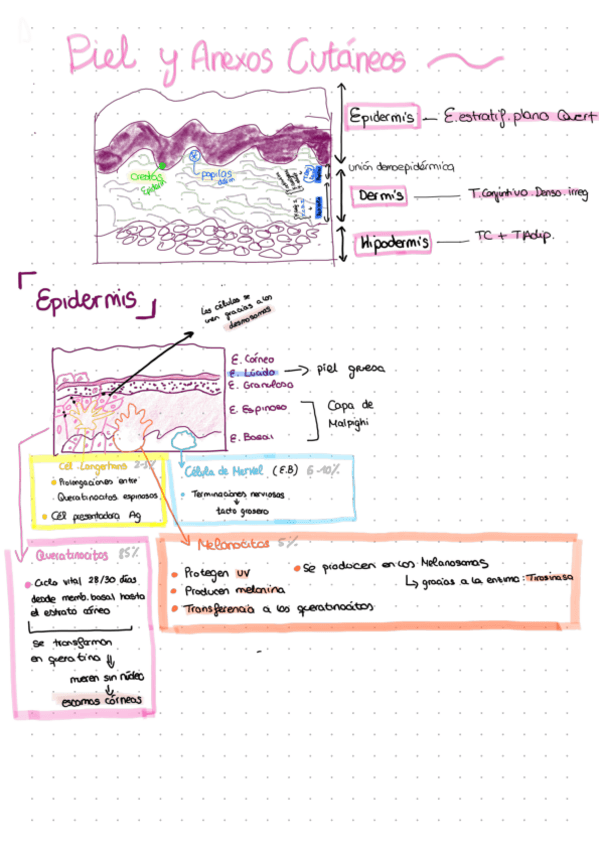 Piel y Anexos Cutáneos
Epidermis — E. estratif. plano Quert
unión demoepidérmica
Dermis — T. Conjintivo Denso irreg
Hipodermis — TC + TAdip.
Crestas
Epiderm
papilas
Epidermis
Las células se
unen gracias a los
desmosomas
E. Corneo
E. Lúcido → piel gruesa
E. Granuloso
E. Espinoso
E. Basal
Capa de
Malpighi
Cél. Langerhans 2-5%
Prolongaciones entre
Queratinocitos espinosos.
Cél presentadora Ag
Célula de Merkel (E.B) 6-10%
Terminaciones nerviosas
↓
tacto grosero
Queratinocitos 85%
Ciclo vital 28/30 días
desde memb. basal hasta
el estrato córneo
se transforman
en queratina
mueren sin núcleo
↓
escamas córneas
Melanocitos 5%
Protegen UV
Producen melanina
Transferencia a los queratinocitos
Se producen en los Melanosomas
↳ gracias a la enzima: Tirosinasa